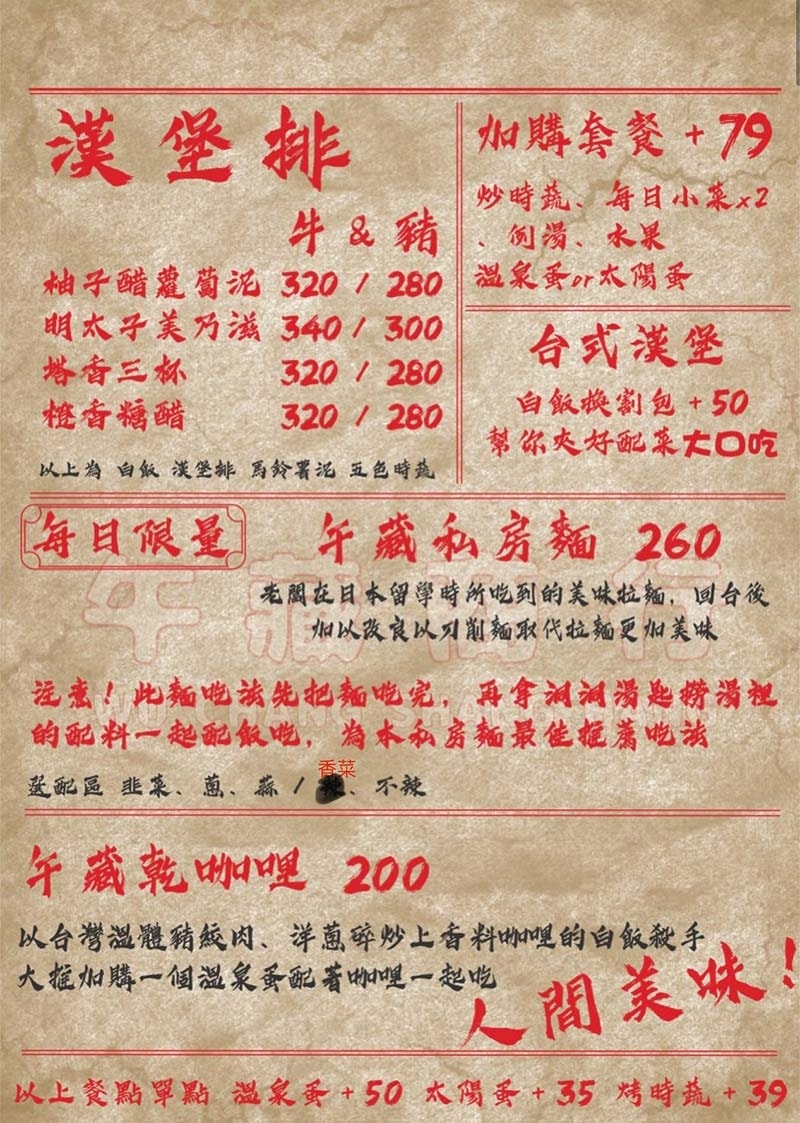 漢堡排
牛 & 豬
柚子醋蘿蔔泥 320 / 280
明太子美乃滋 340 / 300
塔香三杯 320 / 280
橙香糖醋 320 / 280
以上為 白飯 漢堡排 馬鈴薯泥 五色時蔬
加購套餐 + 79
炒時蔬、每日小菜x2
、例湯、水果
溫泉蛋or太陽蛋
台式漢堡
白飯換割包 + 50
幫你夾好配菜大口吃
每日限量
午藏私房麵 260
老闆在日本留學時所吃到的美味拉麵，回台後
加以改良以刀削麵取代拉麵更加美味
注意！此麵吃法先把麵吃完，再拿洞洞湯匙撈湯裡
的配料一起配飯吃，為本私房麵最佳推薦吃法
香菜
選配區 韭菜、蔥、蒜 / 、不辣
午藏乾咖哩 200
以台灣溫體豬絞肉、洋蔥碎炒上香料咖哩的白飯殺手
大推加購一個溫泉蛋配著咖哩一起吃
人間美味！
以上餐點單點 溫泉蛋 + 50 太陽蛋 + 35 烤時蔬 + 39